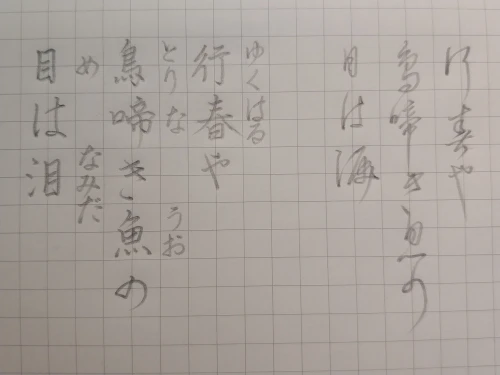 行春や
鳥啼き魚の
目は
ゆくはる
行春や
とり な うお
鳥啼き魚の
め なみだ
目は泪